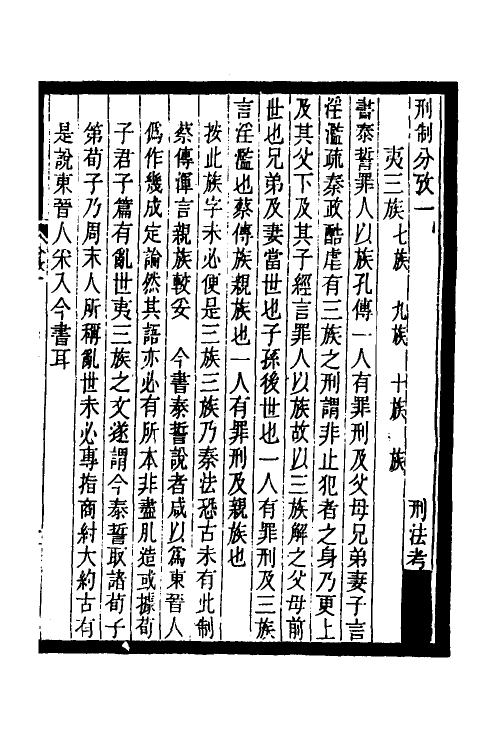 刑制分攷一　刑法考
夷三族　七族　九族　十族　族
書泰誓罪人以族孔傳一人有罪刑及父母兄弟妻子言
淫濫疏秦政酷虐有三族之刑謂非止犯者之身乃更上
及其父下及其子經言罪人以族故以三族解之父母前
世也兄弟及妻當世也子孫後世也一人有罪刑及三族
言淫濫也蔡傳族親族也一人有罪刑及親族也
按此族字未必便是三族三族乃秦法恐古未有此制
蔡傳渾言親族較妥　今書泰誓說者咸以爲東晉人
僞作幾成定論然其語亦必有所本非盡肊造或據荀
子君子篇有亂世夷三族之文遂謂今泰誓取諸荀子
第荀子乃周末人所稱亂世未必專指商紂大約古有
是說東晉人采入今書耳